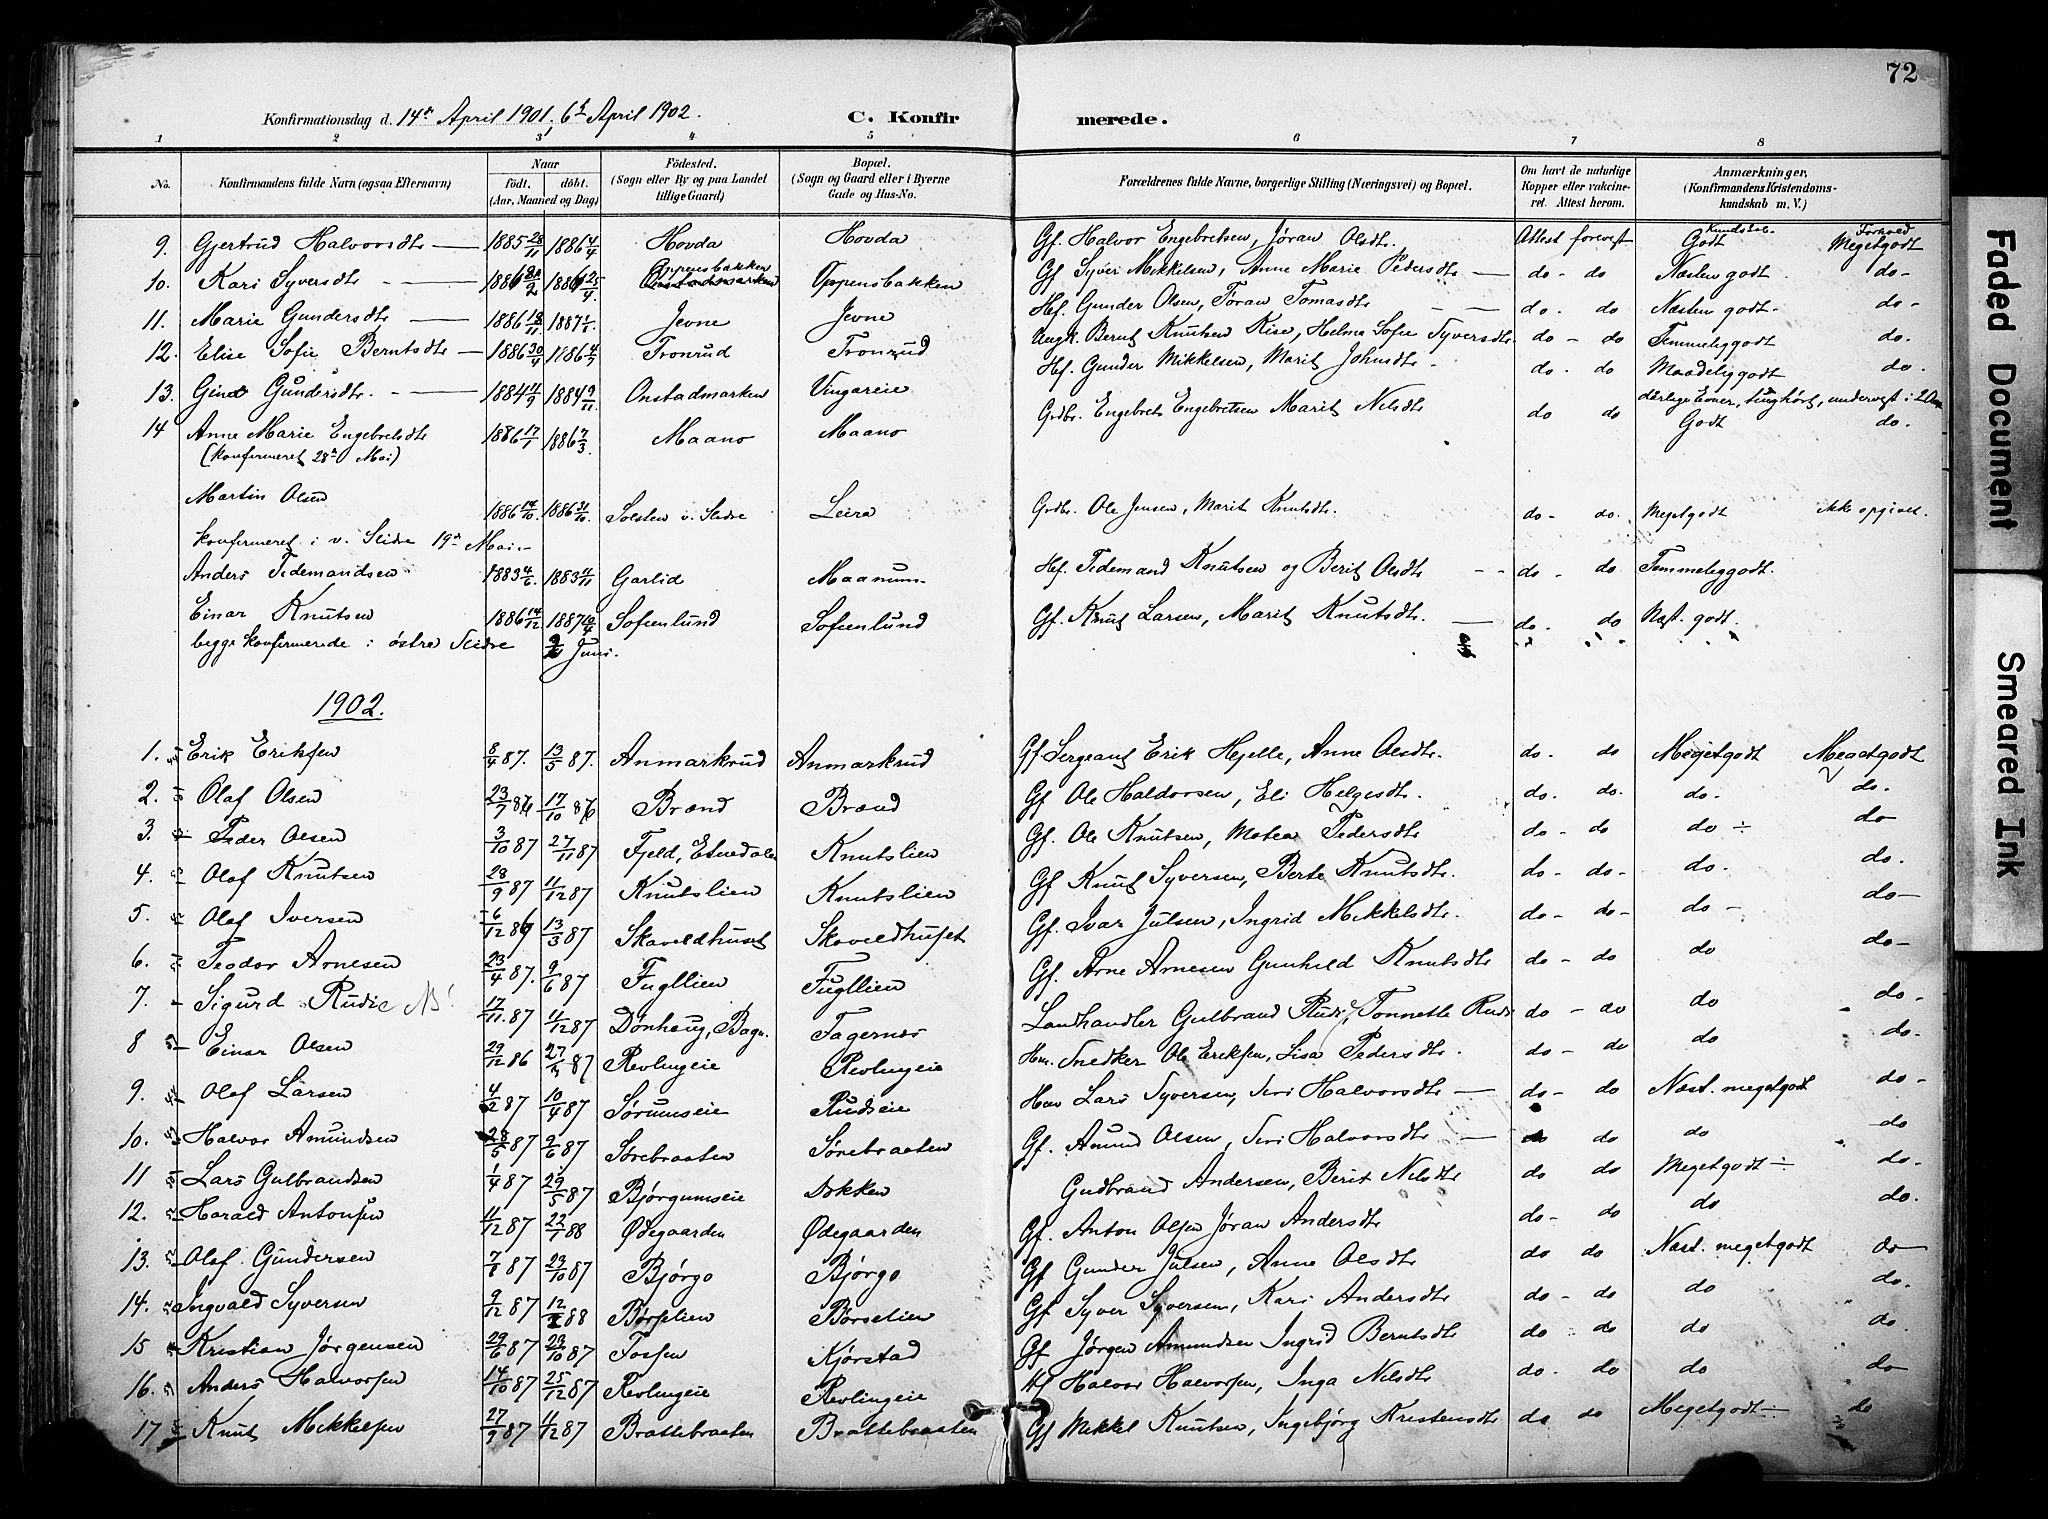 72
Konfirmationsdag d. 14de April 1901, 6te April 1902. C. Konfirmerede.
1 2 3 4 5 6 7 8
No. Konfirmandens fulde Navn (ogsaa Efternavn) Naar födt. döbt. (Aar, Maaned og Dag) Födested. (Sogn eller By og paa Landet tillige Gaard) Bopæl. (Sogn og Gaard eller i Byerne Gade og Hus-No. Forældrenes fulde Navne, borgerlige Stilling (Næringsvei) og Bopæl. Om havt de naturlige Kopper eller vakcineret. Attest herom. Anmærkninger, (Konfirmandens Kristendomskundskab m. V.)
Kundskab. Forhold
9. Gjertrud Halvorsdtr 1885 28/11 1886 4/4 Hovda Hovda Gf. Halvor Engebretsen, Jøran Olsdt. Attest forevist Godt Megetgodt
10. Kari Syversdtr 1886 1886 25/4 Oppensbakken Oppensbakken Gf Syver Mikkelsen, Anne Marie Pedersdtr do - do Næsten godt. do-
11. Marie Gundersdtr 1886 18/11 1887 Jevne Jevne Hf. Gunder Olsen, Jøran Tomasdtr do. do Næsten godt. do-
12. Elise Sofie Berntsdtr 1886 30/4 1886 Tronrud Tronrud Ungk. Bernt Knutsen Kise, Helene Sofie Syversdtr. do - do Temmeliggodt do.
13. Gina Gundersdtr. 1884 11/9 1884 9/11 Onstadmarken Vingareie Hf. Gunder Mikkelsen, Marit Johnsdtr do. do Maadeliggodt do.
dårlige Evner, tunghørt, undervist i 2 Aar
14 Anne Marie Engebretsdtr 1886 17/1 1886 7/3. Maano Maano Grdbr. Engebret Engebretsen Marit Nilsdtr do do Godt do.
(konfirmeret 28de Mai)
Martin Olsen 1886 14/10. 1886 31/10. Solsten v. Slidre Leira Grdbr. Ole Jensen, Marit Knutsdtr. do- do. Megetgodt ikke opgivet.
konfirmeret i v. Slidre 19de Mai.-
Anders Tidemandsen 1883 4/6. 1883 11/11 Garlid Maanum Hf. Tidemand Knutsen og Berit Olsdtr do - do. Temmeliggodt.
Einar Knutsen 1886 14/12 1887 Sofienlund Sofienlund Gf. Knut Larsen, Marit Knutsdtr. do. do Næst. godt.
begge konfirmerede i østre Slidre Juni.
1902.
1. Erik Eriksen 8/4 87. 13/5 87. Anmarkrud Anmarkrud Gf Sergeant Erik Hejelle, Anne Olsdtr. do. do Megetgodt Megetgodt
2. Olaf Olsen 23/7 86 17/10 86 Brænd Brænd Gf Ole Haldorsen, Eli Helgesdtr. do. do. do. do.
3. Peder Olsen 3/10 87 27/11 87 Fjeld, Etnedalen Knutslien Gf. Ole Knutsen, Matea Pedersdtr do- do do ÷ do
4. Olaf Knutsen 28/9 87 11/12 87 Knutslien Knutslien Gf Knut Syversen, Berte Knutsdtr. do- do- do. do.
5. Olaf Iversen 6/12 86 13/3 87 Skaveldhuset Skaveldhuset Gf. Ivar Julsen, Ingrid Mikkelsdtr. do- do- do- do-
6. Teodor Arnesen 23/4 87. 9/6 87 Fugllien Fugllien Gf. Arne Arnesen Gunhild Knutsdtr do- do do do-
7. Sigurd Rudie 17/11. 87 11/12 87 Dønhaug, Bagn. Fagernæs Landhandler Gulbrand Rudi, Tonnette Rudi do - do do do-
8 Einar Olsen 29/12 86 27/3 87 Revlingeie Revlingeie Hm. Snedker Ole Eriksen, Lisa Pedersdtr. do- do do do-
9. Olaf Larsen 4/2 87 10/4 87 Sørumseie Rudseie Hm Lars Syversen, Siri Halvorsdtr do- do Næst. megetgodt do-
10. Halvor Amundsen 28/5 87 9/6 87 Sørebraaten Sørebraaten Gf. Amund Olsen, Siri Halvorsdtr do do do do
11 Lars Gulbrandsen 1/4 87 29/5 87 Bjørgumseie Dokken Gudbrand Andersen, Berit Nilsdtr do do Megetgodt÷ do-
12. Harald Antonsen 11/12 87 22/1 88 Ødegaarden Ødegaarden Gf. Anton Olsen Jøran Andersdtr do- do do do.
13. Olaf Gundersen 87 23/10 87 Bjørgo Bjørgo Gf Gunder Julsen, Anne Olsdtr do do Næst. megetgodt do
14. Ingvald Syversen 9/12 87 88 Børselien Børselien Gf Syver Syversen, Kari Andersdtr do- do do do.
15 Kristian Jørgensen 29/6 87 23/10 87 Fossen Kjørstad Gf Jørgen Amundsen Ingrid Berntsdtr do do do do.
16. Anders Halvorsen 14/10 87 25/12 87 Revlingeie Revlingeie Hf Halvor Halvorsen, Inga Nilsdtr do. do do do
17 Knut Mikkelsen 27/9 87 11/12 87 Brattebraaten Brattebraaten Gf Mikkel Knutsen, Ingebjørg Kristensdtr do do Megetgodt÷ do
Faded Document
Smeared Ink